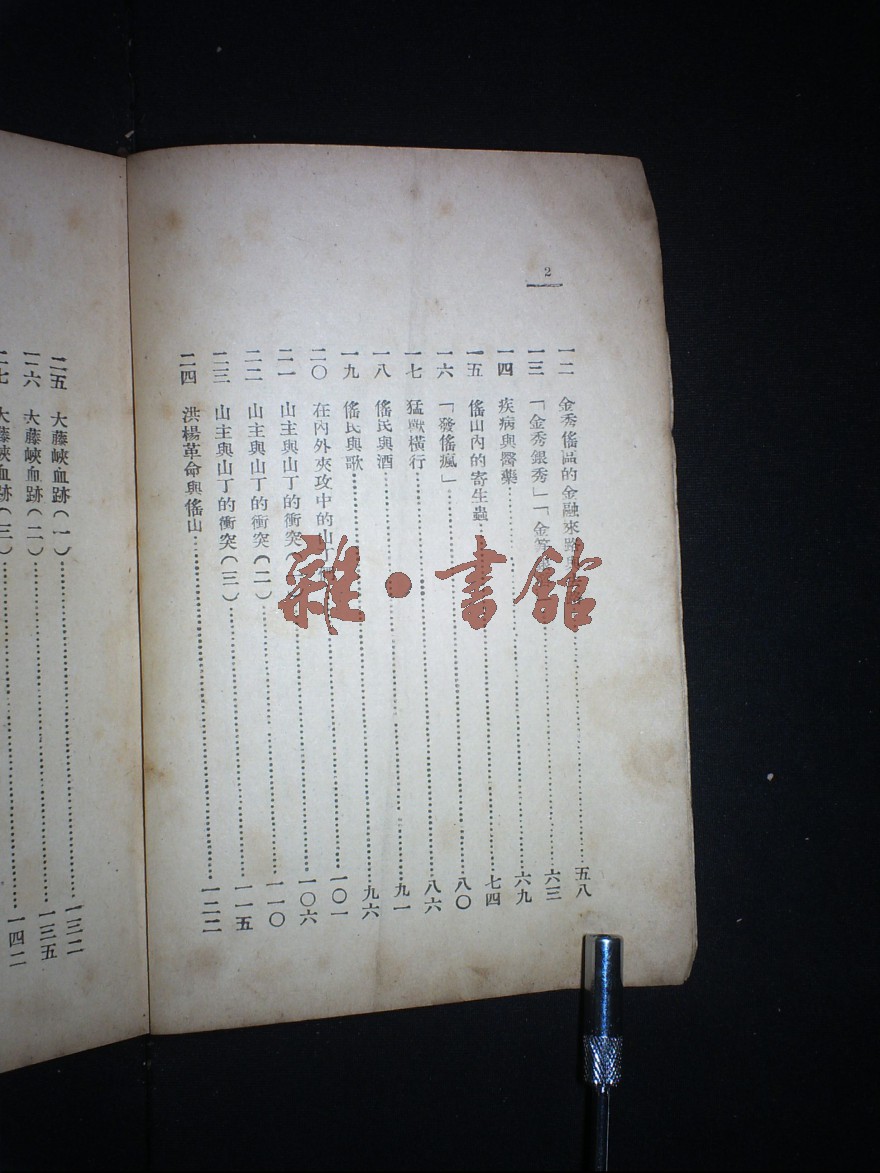 2
一二 金秀傜區的金融來路與……五八
一三 「金秀銀秀」「金……六三
一四 疾病與醫藥……六九
一五 傜山內的寄生蟲……七四
一六 「發傜瘋」……八〇
一七 猛獸橫行……八六
一八 傜民與酒……九一
一九 傜民與歌……九六
二〇 在內外夾攻中的山丁……一〇一
二一 山主與山丁的衝突（……一〇六
二二 山主與山丁的衝突（二）……一一〇
二三 山主與山丁的衝突（三）……一一五
二四 洪楊革命與傜山……一二二
二五 大藤峽血跡（一）……一三二
二六 大藤峽血跡（二）……一三五
二七 大藤峽血跡（三）……一四二
雜·書館